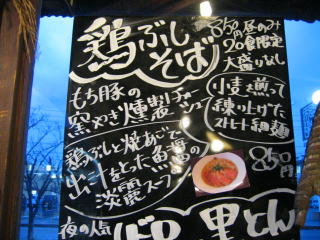 鶏ぶし
そば
850円昼のみ
20食限定
大盛りなし
もち豚の
窯やき燻製チャーシュー
小麦を煎って
練り上げた
ストレート細麺
鶏ぶしと焼あごで
出汁をとった魚醤の
淡麗スープ
850円
夜の人気